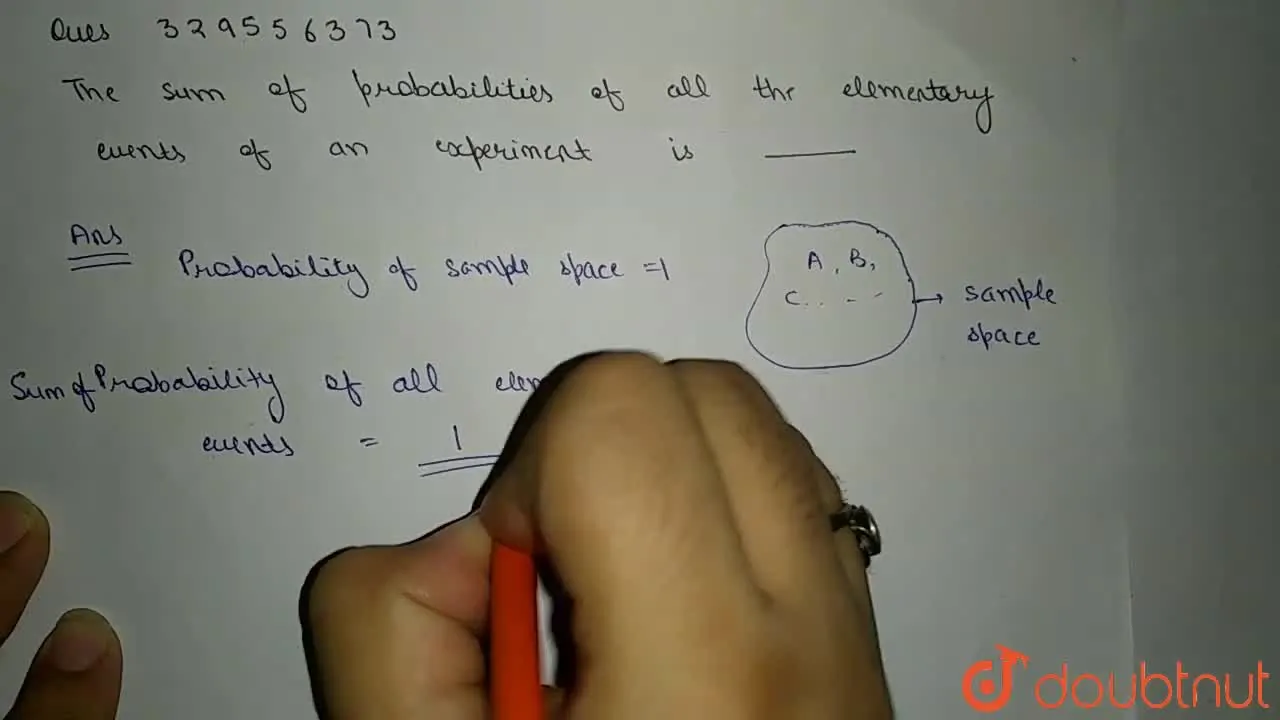 Ques 329556373
The sum of probabilities of all the elementary
events of an experiment is ____
Ans
Probability of sample space =1
A, B,
C.. - -
sample
space
Sum of Probability of all
events = 1
doubtnut